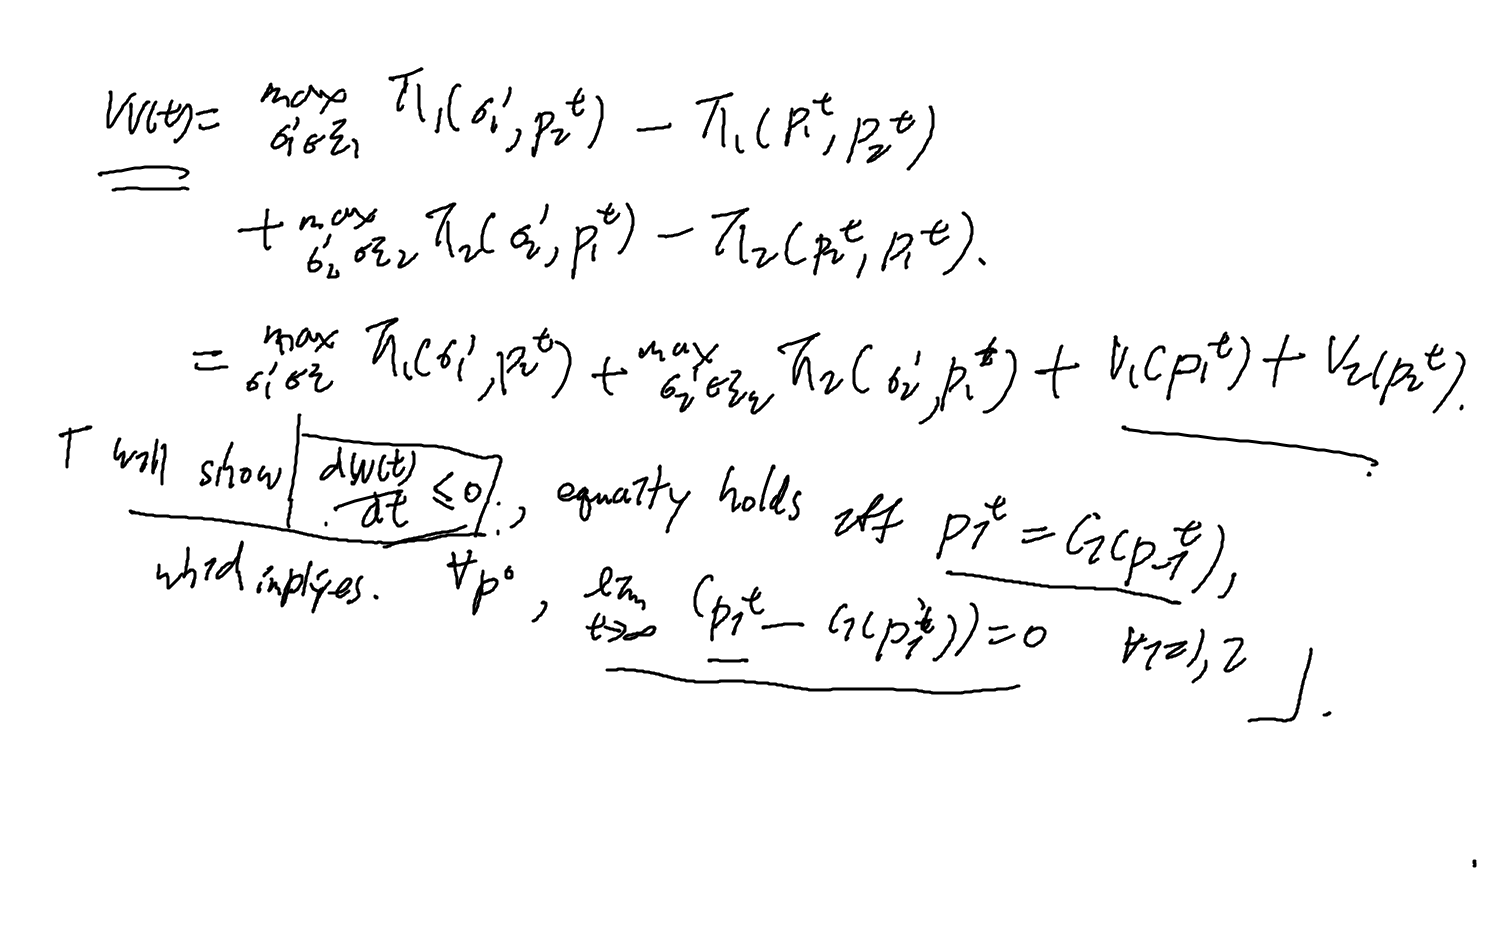 W(t) = max_{σ₁'∈Σ₁} π₁(σ₁', p₂ᵗ) − π₁(p₁ᵗ, p₂ᵗ)
+ max_{σ₂'∈Σ₂} π₂(σ₂', p₁ᵗ) − π₂(p₂ᵗ, p₁ᵗ).
= max_{σ₁'∈Σ} π₁(σ₁', p₂ᵗ) + max_{σ₂'∈Σ₂} π₂(σ₂', p₁ᵗ) + V₁(p₁ᵗ) + V₂(p₂ᵗ).
I will show dW(t)/dt ≤ 0, equality holds iff pᵢᵗ = Cᵢ(p₋ᵢᵗ),
which implies. ∀p⁰, lim_{t→∞} (pᵢᵗ − Cᵢ(pᵢᵗ)) = 0 ∀i=1,2